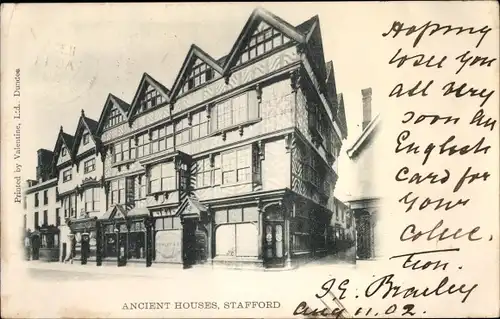 Printed by Valentine, Ltd. Dundee
Hoping
to see you
all very
soon An
English
card for
your
collec-
tion.
J.E. Bradley
Aug 11.02.
ANCIENT HOUSES, STAFFORD